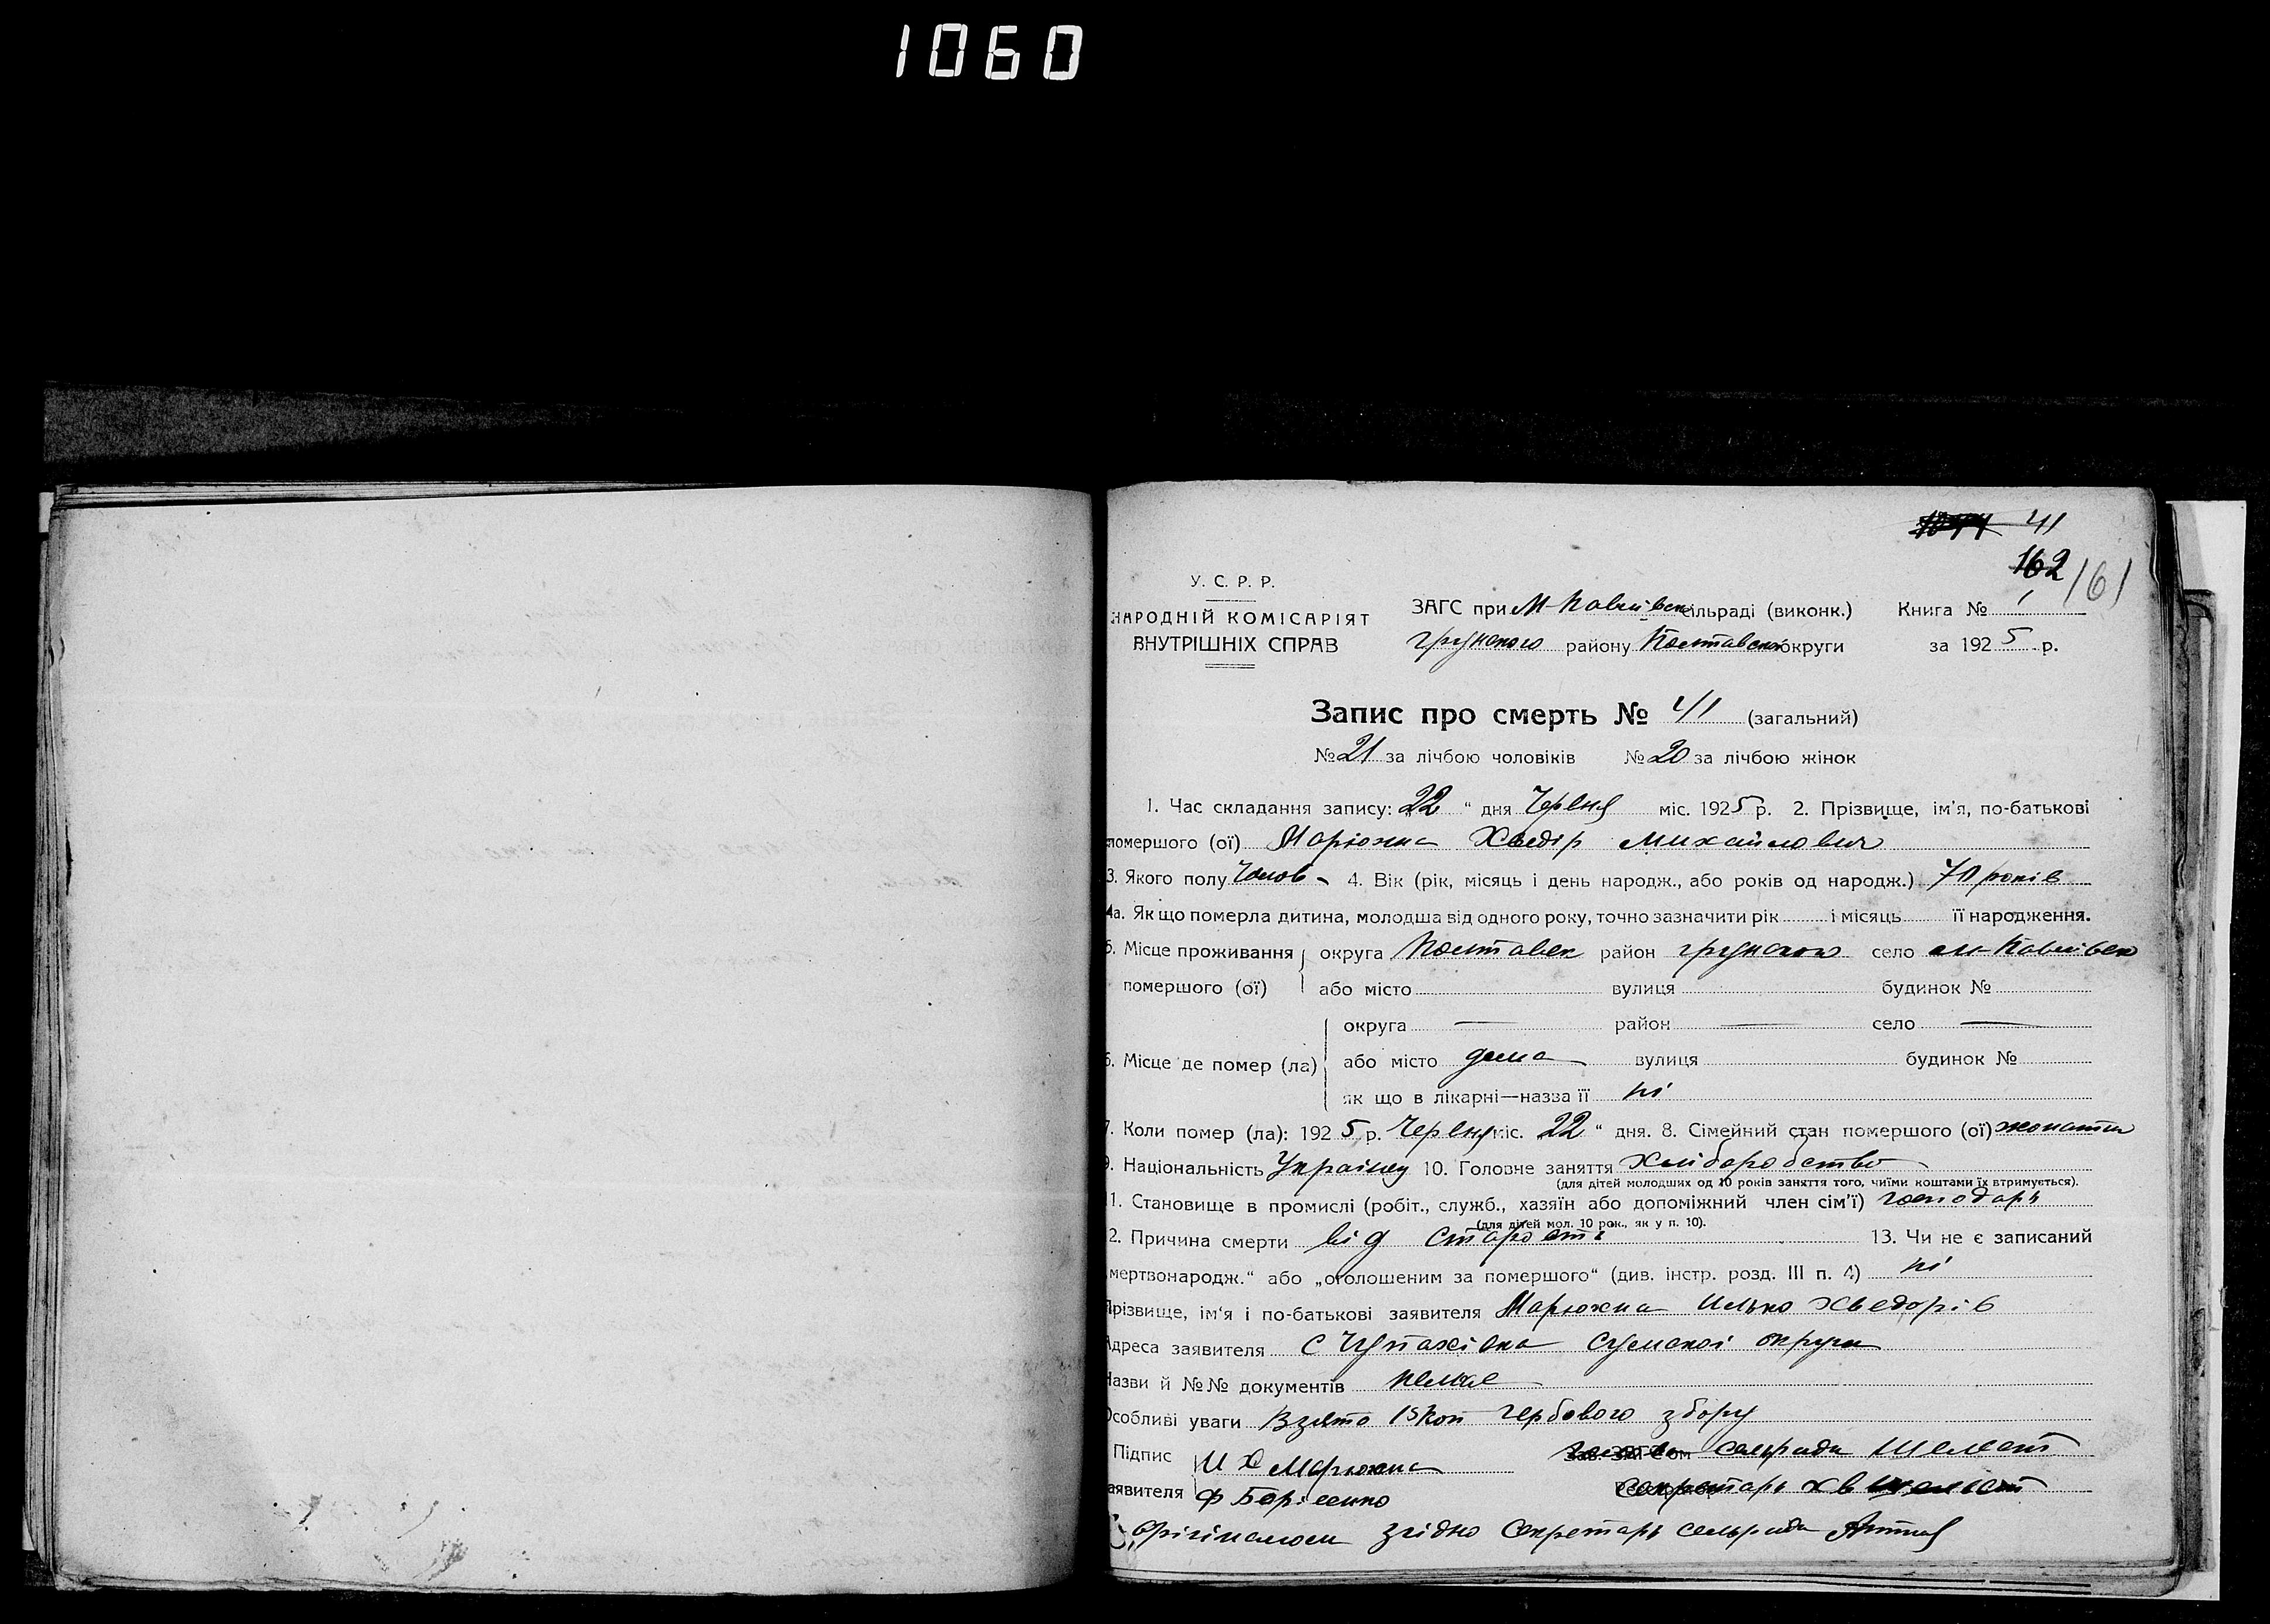 1060
41
162 161
У. С. Р. Р.
НАРОДНІЙ КОМІСАРІЯТ
ВНУТРІШНІХ СПРАВ
ЗАГС при М-Павлівск сільраді (виконк.) Книга № 1
грунского району Полтавської округи за 1925 р.
Запис про смерть № 41 (загальний)
№ 21 за лічбою чоловіків № 20 за лічбою жінок
1. Час складання запису: „22“ дня Червня міс. 1925 р. 2. Прізвище, ім'я, по-батькові
помершого (ої) Марюхна Хведір Михайлович
3. Якого полу Чолов 4. Вік (рік, місяць і день народж., або років од народж.) 70 років
4а. Як що померла дитина, молодша від одного року, точно зазначити рік і місяць її народження.
5. Місце проживання округа Полтавск район грунском село М-Павлівск
помершого (ої) або місто вулиця будинок №
округа — район — село —
6. Місце де помер (ла) або місто дома вулиця будинок №
як що в лікарні—назва її ні
7. Коли помер (ла): 1925 р. Червня міс. 22 “ дня. 8. Сімейний стан помершого (ої) жонатий
9. Національність Україне 10. Головне заняття хліборобство
(для дітей молодших од 10 років заняття того, чиїми коштами їх втримується).
11. Становище в промислі (робіт., служб., хазяїн або допоміжний член сім'ї) господарь
(для дітей мол. 10 рок., як у п. 10).
12. Причина смерти від старости 13. Чи не є записаний
„мертвонародж.“ або „оголошеним за помершого“ (див. інстр. розд. III п. 4) ні
Прізвище, ім'я і по-батькові заявителя Марюхна Илько Хведорів
Адреса заявителя с Чупахівка сумскої округи
Назви й №№ документів немає
Особливі уваги Взято 15 коп гербового збору
Підпис И Х Марюхна сельради Шелест
заявителя Ф Борісенко секретарь
З орігіналом згідно Секретарь сельради